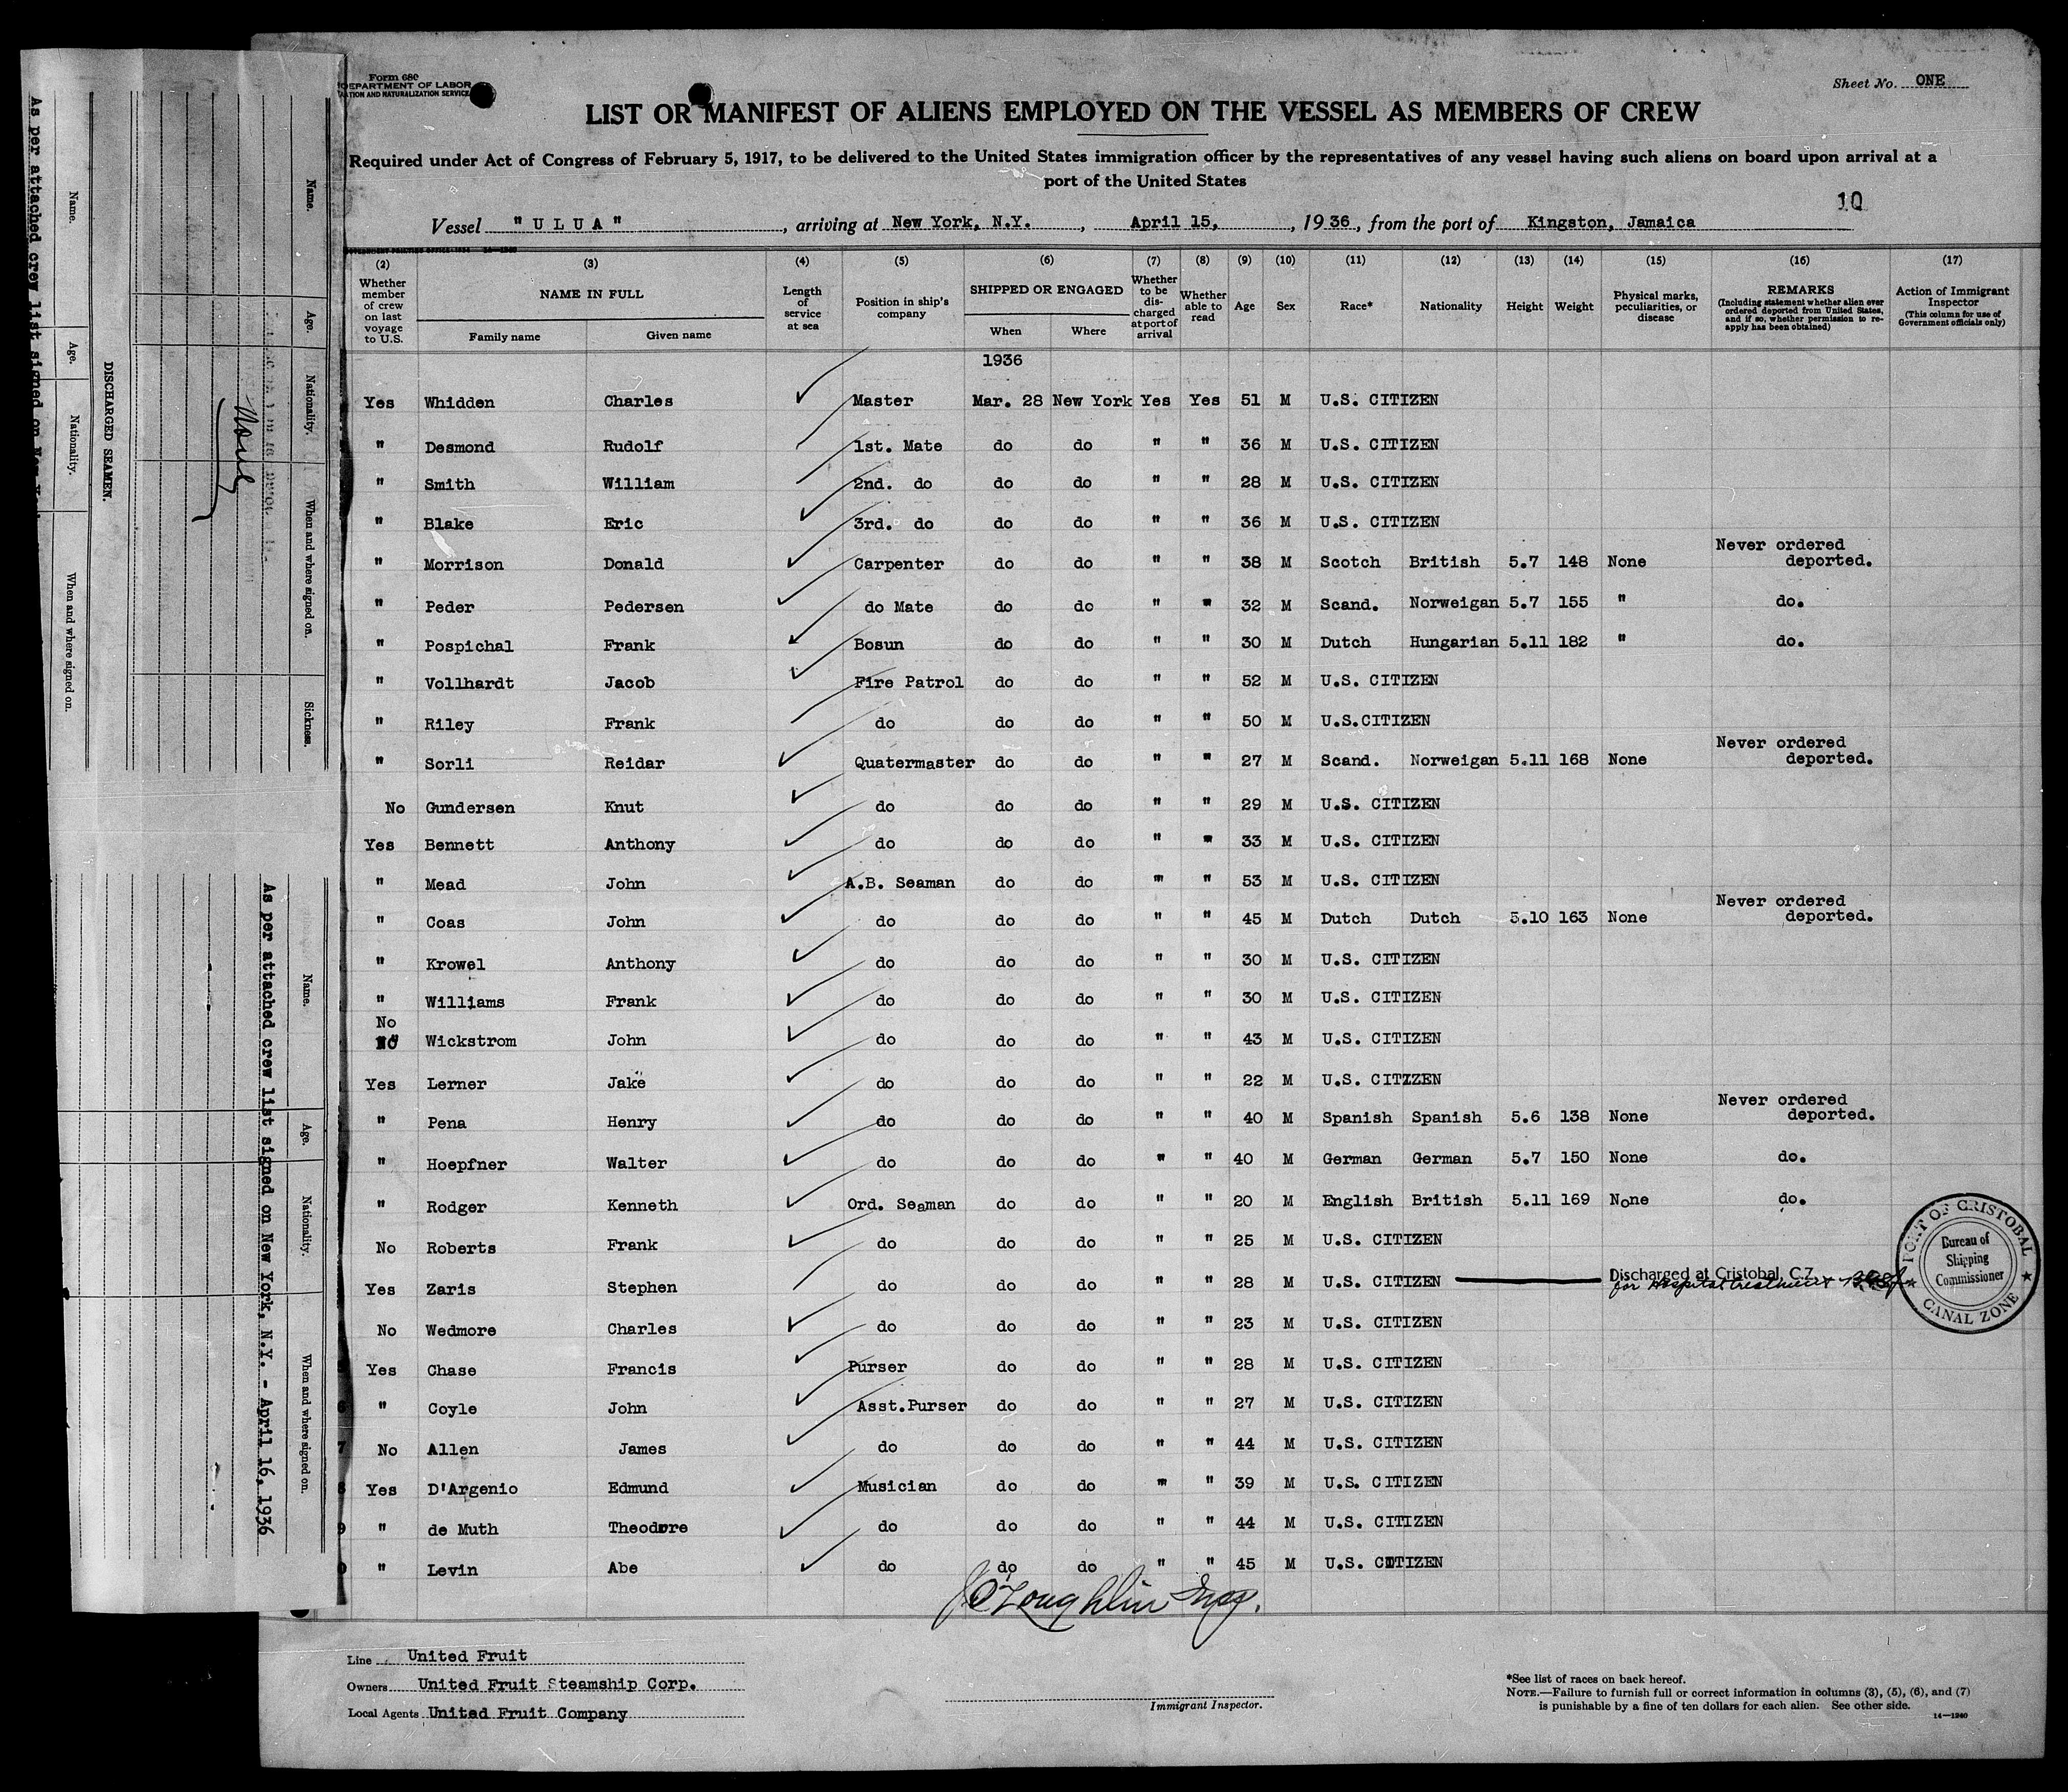 Form 680
DEPARTMENT OF LABOR
NATURALIZATION SERVICE
Sheet No. ONE
LIST OR MANIFEST OF ALIENS EMPLOYED ON THE VESSEL AS MEMBERS OF CREW
Required under Act of Congress of February 5, 1917, to be delivered to the United States immigration officer by the representatives of any vessel having such aliens on board upon arrival at a
port of the United States
10
Vessel "ULUA", arriving at New York, N.Y., April 15, 1936, from the port of Kingston, Jamaica
(2) (3) (4) (5) (6) (7) (8) (9) (10) (11) (12) (13) (14) (15) (16) (17)
Whether member of crew on last voyage to U.S. NAME IN FULL Family name Given name Length of service at sea Position in ship's company SHIPPED OR ENGAGED When Where Whether to be discharged at port of arrival Whether able to read Age Sex Race* Nationality Height Weight Physical marks, peculiarities, or disease REMARKS (Including statement whether alien ever ordered deported from United States, and if so, whether permission to reapply has been obtained) Action of Immigrant Inspector (This column for use of Government officials only)
1936
Yes Whidden Charles Master Mar. 28 New York Yes Yes 51 M U.S. CITIZEN
" Desmond Rudolf 1st. Mate do do " " 36 M U.S. CITIZEN
" Smith William 2nd. do do do " " 28 M U.S. CITIZEN
" Blake Eric 3rd. do do do " " 36 M U.S. CITIZEN
" Morrison Donald Carpenter do do " " 38 M Scotch British 5.7 148 None Never ordered deported.
" Peder Pedersen do Mate do do " " 32 M Scand. Norweigan 5.7 155 " do.
" Pospichal Frank Bosun do do " " 30 M Dutch Hungarian 5.11 182 " do.
" Vollhardt Jacob Fire Patrol do do " " 52 M U.S. CITIZEN
" Riley Frank do do do " " 50 M U.S.CITIZEN
" Sorli Reidar Quatermaster do do " " 27 M Scand. Norweigan 5.11 168 None Never ordered deported.
No Gundersen Knut do do do " " 29 M U.S. CITIZEN
Yes Bennett Anthony do do do " " 33 M U.S. CITIZEN
" Mead John A.B. Seaman do do " " 53 M U.S. CITIZEN
" Coas John do do do " " 45 M Dutch Dutch 5.10 163 None Never ordered deported.
" Krowel Anthony do do do " " 30 M U.S. CITIZEN
" Williams Frank do do do " " 30 M U.S. CITIZEN
No
No Wickstrom John do do do " " 43 M U.S. CITIZEN
Yes Lerner Jake do do do " " 22 M U.S. CITIZEN
" Pena Henry do do do " " 40 M Spanish Spanish 5.6 138 None Never ordered deported.
" Hoepfner Walter do do do " " 40 M German German 5.7 150 None do.
" Rodger Kenneth Ord. Seaman do do " " 20 M English British 5.11 169 None do.
No Roberts Frank do do do " " 25 M U.S. CITIZEN
Yes Zaris Stephen do do do " " 28 M U.S. CITIZEN Discharged at Cristobal, C.Z.
for Hospital treatment
PORT OF CRISTOBAL
Bureau of
Shipping
Commissioner
CANAL ZONE
No Wedmore Charles do do do " " 23 M U.S. CITIZEN
Yes Chase Francis Purser do do " " 28 M U.S. CITIZEN
6 " Coyle John Asst.Purser do do " " 27 M U.S. CITIZEN
7 No Allen James do do do " " 44 M U.S. CITIZEN
8 Yes D'Argenio Edmund Musician do do " " 39 M U.S. CITIZEN
9 " de Muth Theodore do do do " " 44 M U.S. CITIZEN
0 " Levin Abe do do do " " 45 M U.S. CITIZEN
J. O'Loughlin Insp.
Line United Fruit
Owners United Fruit Steamship Corp.
Local Agents United Fruit Company
Immigrant Inspector.
*See list of races on back hereof.
NOTE.—Failure to furnish full or correct information in columns (3), (5), (6), and (7)
is punishable by a fine of ten dollars for each alien. See other side.
14—1240
As per attached crew list signed on New York
Name. Age. Nationality. When and where signed on.
DISCHARGED SEAMEN.
None
Name. Age. Nationality. When and where signed on. Sickness.
As per attached crew list signed on New York, N.Y. - April 16, 1936
Name. Age. Nationality. When and where signed on.